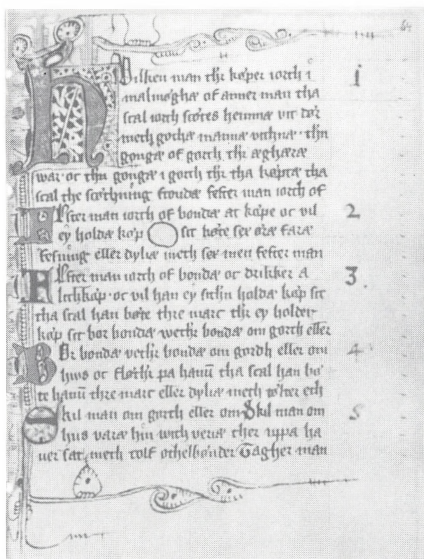 64
Hwilken man thr køper iorth i 1
malmøghæ of anner man tha
scal iorth scotes hemmæ vit dør
meth gothæ mannæ vithnæ · thn
gongæ of gorth thr æghæræ
war · or thn gongæ i gorth thr tha køptæ tha
scal the scøthning stondæ fester man iorth of
Fester man iorth of bondæ at køpe or vil 2
ey holdæ køp sit bøte sex øræ faræ
festning eller dyliæ meth sex men fester man
Fester man iorth of bondæ or drikker a 3
lithkøp · or vil han ey sithn holdæ køp sit
tha scal han bøte thre marc thr ey holder
køp sit bør bondæ wethr bondæ om gorth eller
Bør bondæ vethr bondæ om gordh eller om 4
hws or flothr pa hanū tha scal han bø
te hanū thre marc eller dyliæ meth tolter eth
Skil man om gorth eller om Skil man om 5
hus varæ hin with veriæ ther vppa ha
uer sat meth tolf othelbønder Tagher man